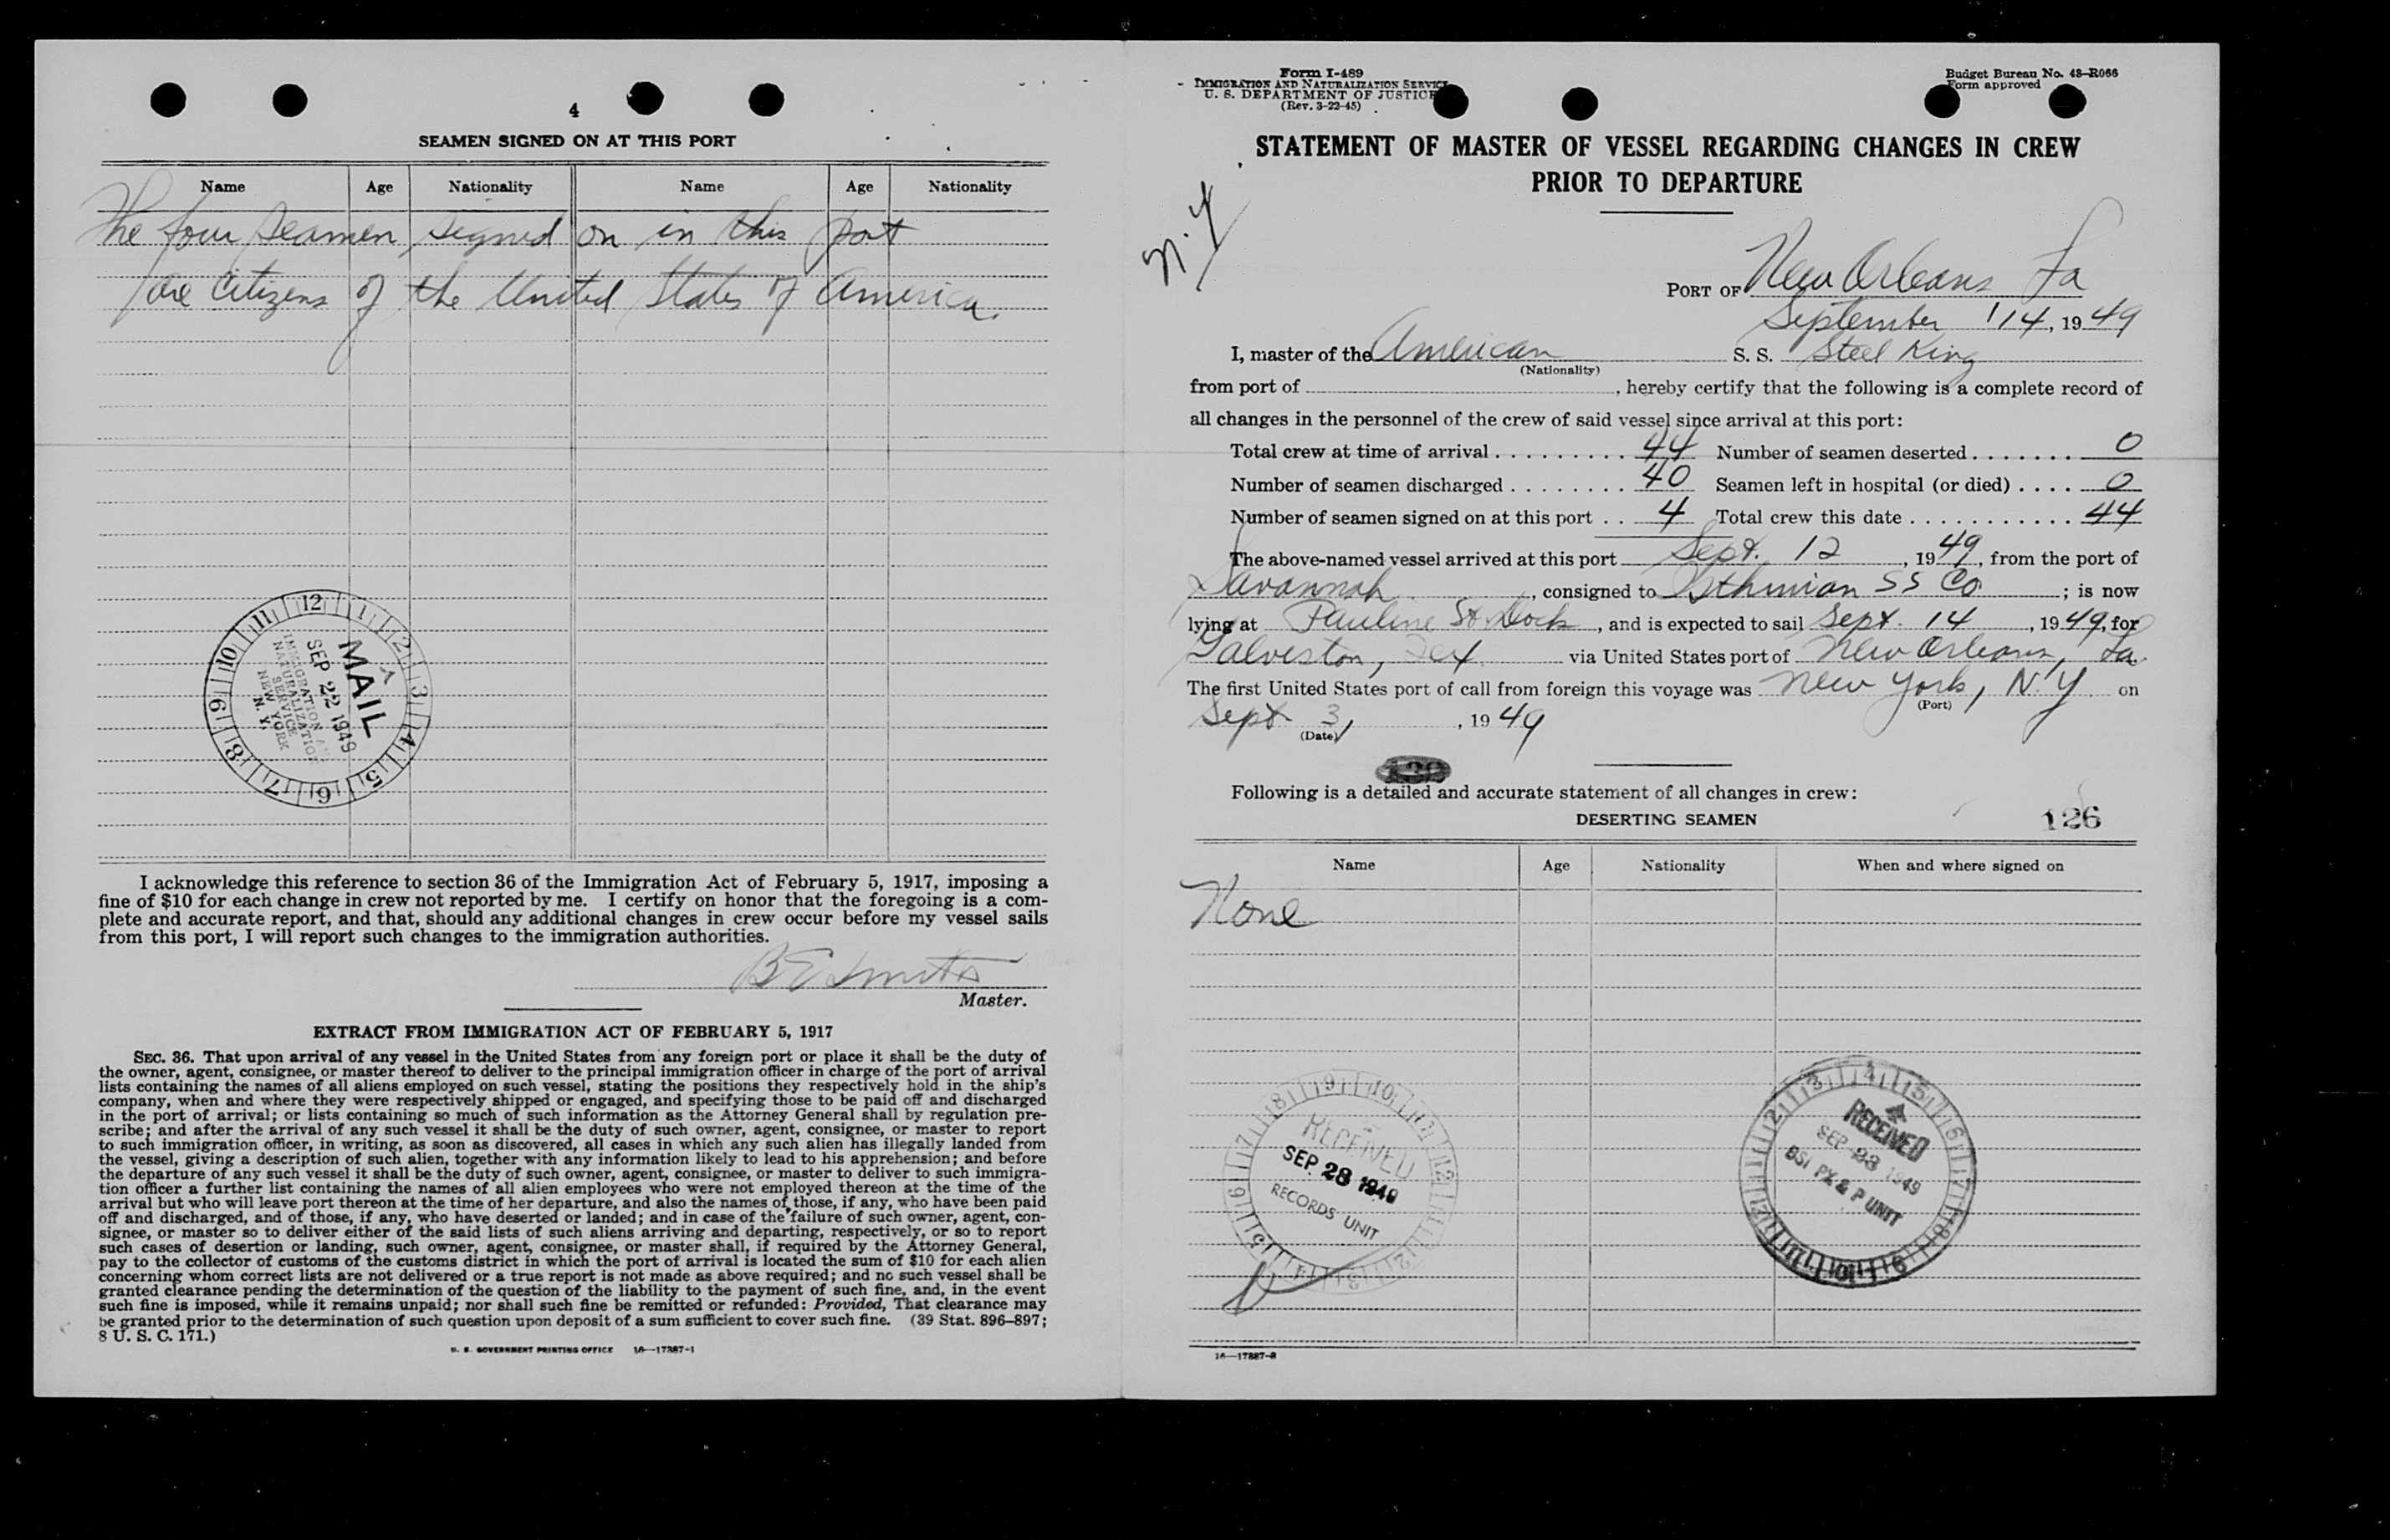 4
SEAMEN SIGNED ON AT THIS PORT
Name Age Nationality Name Age Nationality
The four seamen signed on in this port
are citizens of the United States of America.
12 1 2 3 4 5 6 7 8 9 10 11
MAIL
SEP 22 1949
IMMIGRATION AND
NATURALIZATION
SERVICE
NEW YORK
N. Y.
I acknowledge this reference to section 36 of the Immigration Act of February 5, 1917, imposing a
fine of $10 for each change in crew not reported by me. I certify on honor that the foregoing is a com-
plete and accurate report, and that, should any additional changes in crew occur before my vessel sails
from this port, I will report such changes to the immigration authorities.
B E Smith
Master.
EXTRACT FROM IMMIGRATION ACT OF FEBRUARY 5, 1917
SEC. 36. That upon arrival of any vessel in the United States from any foreign port or place it shall be the duty of
the owner, agent, consignee, or master thereof to deliver to the principal immigration officer in charge of the port of arrival
lists containing the names of all aliens employed on such vessel, stating the positions they respectively hold in the ship's
company, when and where they were respectively shipped or engaged, and specifying those to be paid off and discharged
in the port of arrival; or lists containing so much of such information as the Attorney General shall by regulation pre-
scribe; and after the arrival of any such vessel it shall be the duty of such owner, agent, consignee, or master to report
to such immigration officer, in writing, as soon as discovered, all cases in which any such alien has illegally landed from
the vessel, giving a description of such alien, together with any information likely to lead to his apprehension; and before
the departure of any such vessel it shall be the duty of such owner, agent, consignee, or master to deliver to such immigra-
tion officer a further list containing the names of all alien employees who were not employed thereon at the time of the
arrival but who will leave port thereon at the time of her departure, and also the names of those, if any, who have been paid
off and discharged, and of those, if any, who have deserted or landed; and in case of the failure of such owner, agent, con-
signee, or master so to deliver either of the said lists of such aliens arriving and departing, respectively, or so to report
such cases of desertion or landing, such owner, agent, consignee, or master shall, if required by the Attorney General,
pay to the collector of customs of the customs district in which the port of arrival is located the sum of $10 for each alien
concerning whom correct lists are not delivered or a true report is not made as above required; and no such vessel shall be
granted clearance pending the determination of the question of the liability to the payment of such fine, and, in the event
such fine is imposed, while it remains unpaid; nor shall such fine be remitted or refunded: Provided, That clearance may
be granted prior to the determination of such question upon deposit of a sum sufficient to cover such fine. (39 Stat. 896–897;
8 U. S. C. 171.)
U. S. GOVERNMENT PRINTING OFFICE 16—17387-1
Form I-489
IMMIGRATION AND NATURALIZATION SERVICE
U. S. DEPARTMENT OF JUSTICE
(Rev. 3-22-45)
Budget Bureau No. 43–R066
Form approved
STATEMENT OF MASTER OF VESSEL REGARDING CHANGES IN CREW
PRIOR TO DEPARTURE
N.Y
PORT OF New Orleans La
September 14, 1949
I, master of the American S. S. Steel King
(Nationality)
from port of , hereby certify that the following is a complete record of
all changes in the personnel of the crew of said vessel since arrival at this port:
Total crew at time of arrival 44 Number of seamen deserted 0
Number of seamen discharged 40 Seamen left in hospital (or died) 0
Number of seamen signed on at this port 4 Total crew this date 44
The above-named vessel arrived at this port Sept. 12, 1949, from the port of
Savannah, consigned to Isthmian SS Co; is now
lying at Pauline St. Dock, and is expected to sail Sept. 14, 1949, for
Galveston, Tex. via United States port of New Orleans, La.
The first United States port of call from foreign this voyage was New York, N.Y. on
(Port)
Sept 3, 1949
(Date)
Following is a detailed and accurate statement of all changes in crew:
DESERTING SEAMEN
126
Name Age Nationality When and where signed on
None
RECEIVED
SEP. 28 1949
RECORDS UNIT
RECEIVED
SEP 23 1949
BSI PX & P UNIT
16—17387-2